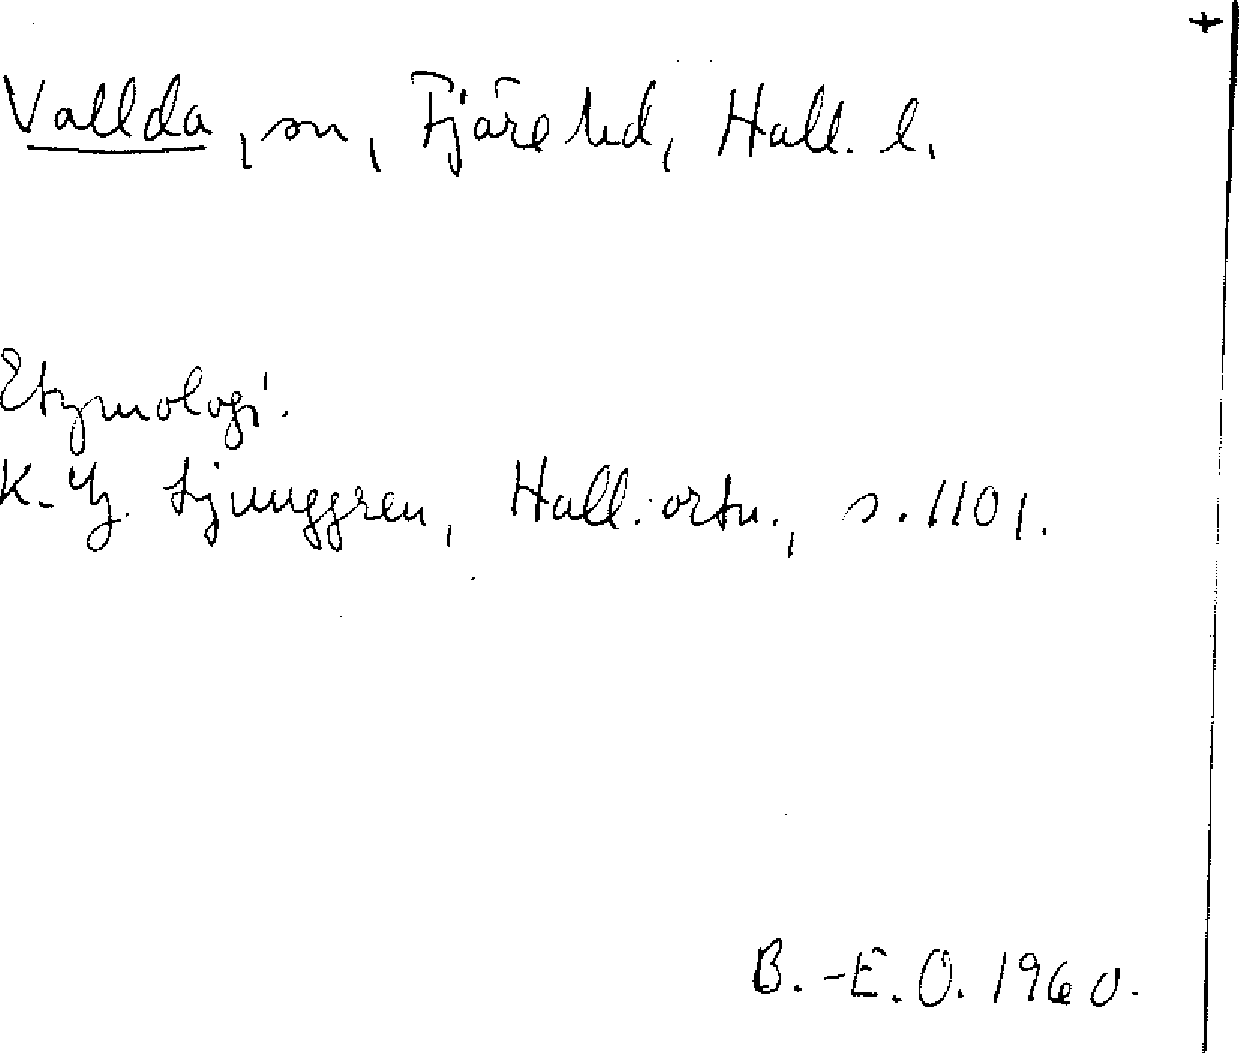 +
Vallda, sn, Fjäre hd, Hall. l.
Etymologi.
K.-G. Ljunggren, Hall. ortn., s. 110 f.
B.-E. O. 1960.